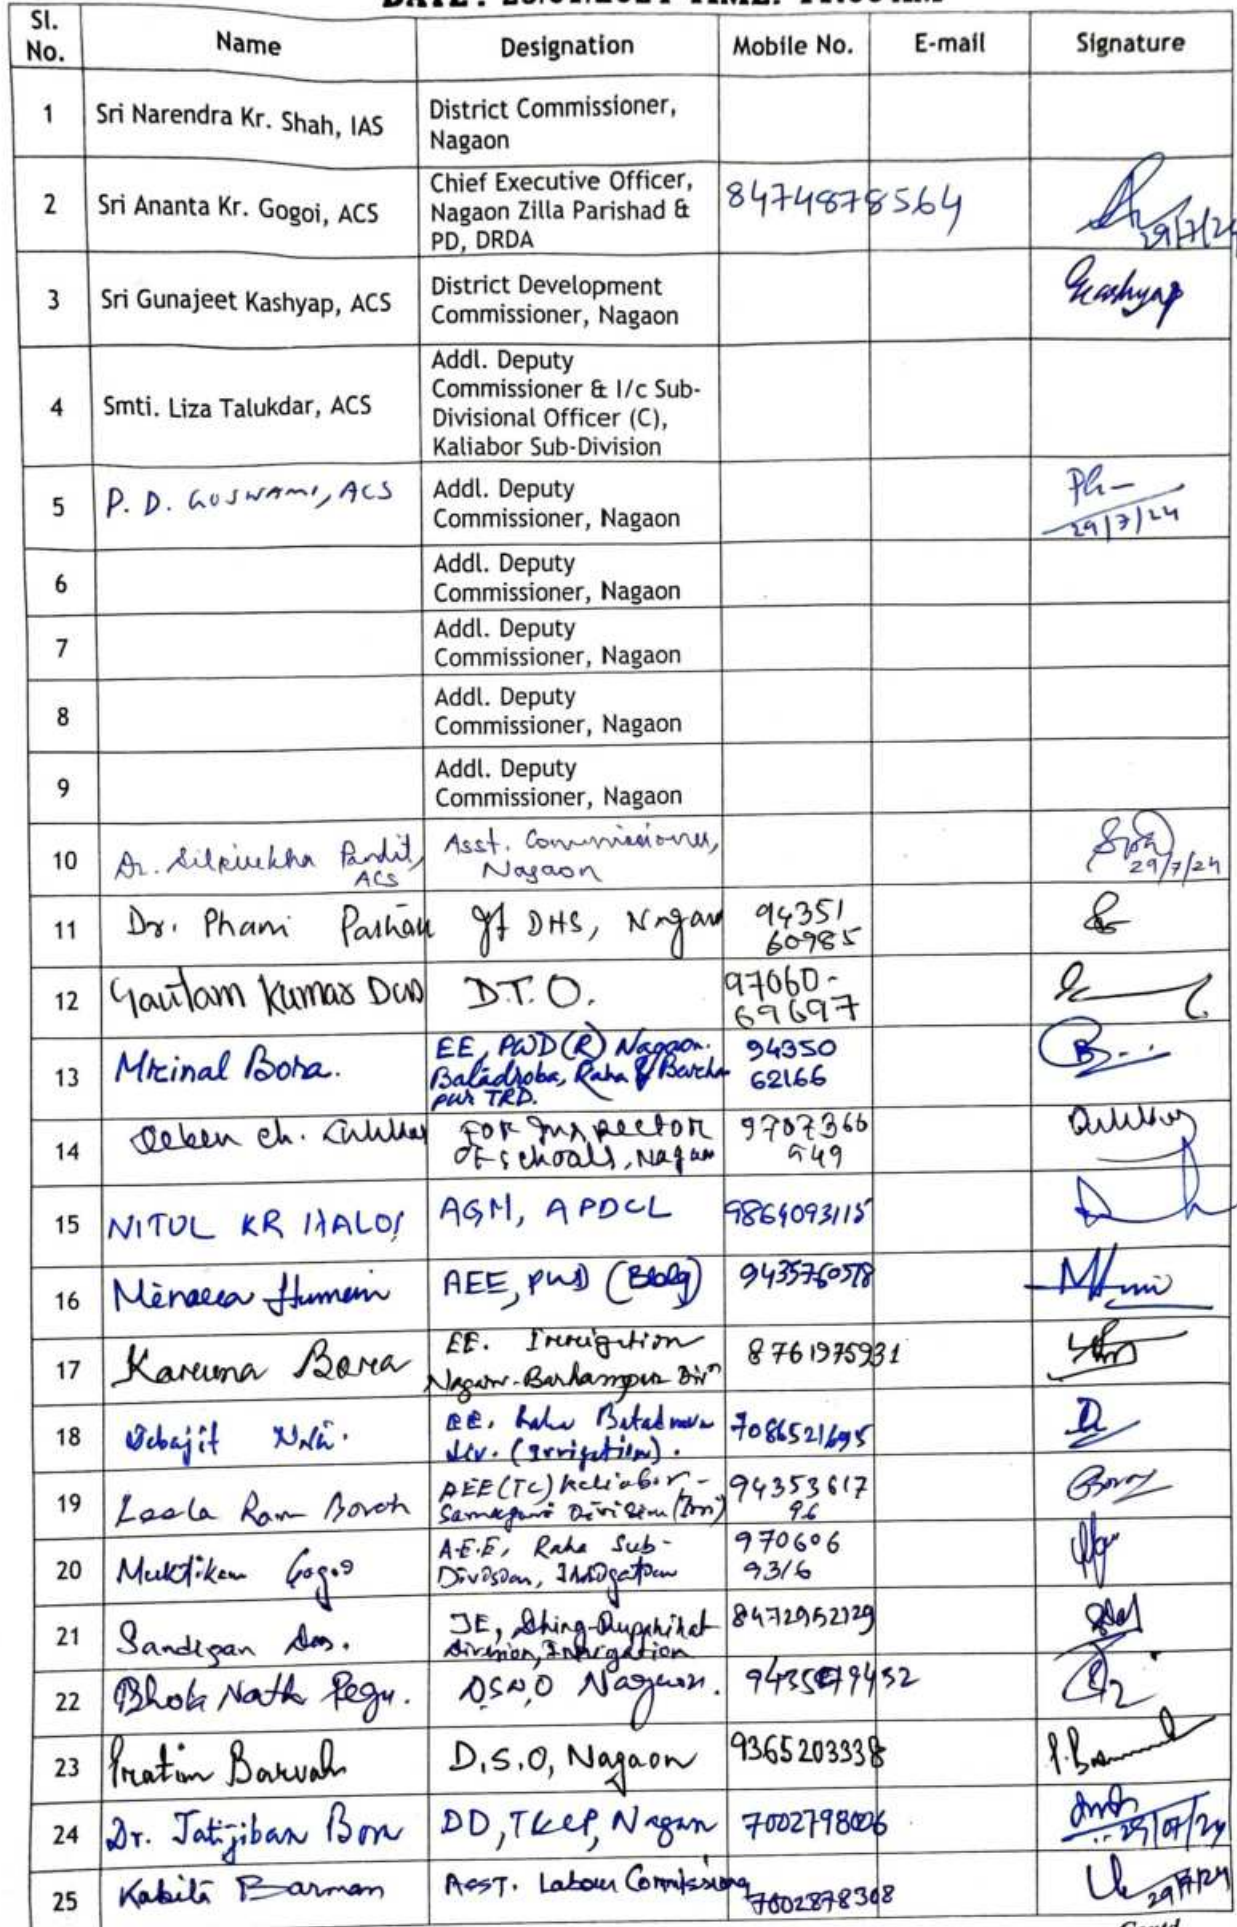 Sl. No. Name Designation Mobile No. E-mail Signature
1 Sri Narendra Kr. Shah, IAS District Commissioner, Nagaon
2 Sri Ananta Kr. Gogoi, ACS Chief Executive Officer, Nagaon Zilla Parishad & PD, DRDA 8474878564 29/7/24
3 Sri Gunajeet Kashyap, ACS District Development Commissioner, Nagaon Gkashyap
4 Smti. Liza Talukdar, ACS Addl. Deputy Commissioner & I/c Sub-Divisional Officer (C), Kaliabor Sub-Division
5 P. D. GOSWAMI, ACS Addl. Deputy Commissioner, Nagaon 29/7/24
6 Addl. Deputy Commissioner, Nagaon
7 Addl. Deputy Commissioner, Nagaon
8 Addl. Deputy Commissioner, Nagaon
9 Addl. Deputy Commissioner, Nagaon
10 Dr. Pandit, ACS Asst. Commissioner, Nagaon 29/7/24
11 Dr. Phani DHS, Nagaon 94351 60985
12 Gautam Kumar Das D.T.O. 97060-69697
13 Mrinal Bora. EE, PWD(R) Nagaon. Raha & TRD. 94350 62166
14 ch. For Inspector of schools, Nagaon 9707366 949
15 NITUL KR HALOI AGM, APDCL 9864093115
16 AEE, PWD (Bldg) 9435760578
17 Karuna Bora EE. Irrigation Nagaon-Barhampur Divn 8761975931
18 Debajit EE. Raha Div. (Irrigation). 7086521695
19 Leela Ram Borah AEE(TC) Kaliabor-Samaguri Division (Irri) 94353617 96
20 Muktikam Gogoi A.E.E, Raha Sub-Division, Irrigation 970606 9316
21 Das. JE, Dhing-Rupahihat Division, Irrigation 8472952129
22 Bhola Nath Pegu. Nagaon.
23 Pratim Baruah D.S.O, Nagaon 9365203338
24 Dr. Jatijiban Bora DD, Nagaon 7002798026 29/07/24
25 Kabita Barman Asst. Labour Commissioner 7002878308 29/7/24